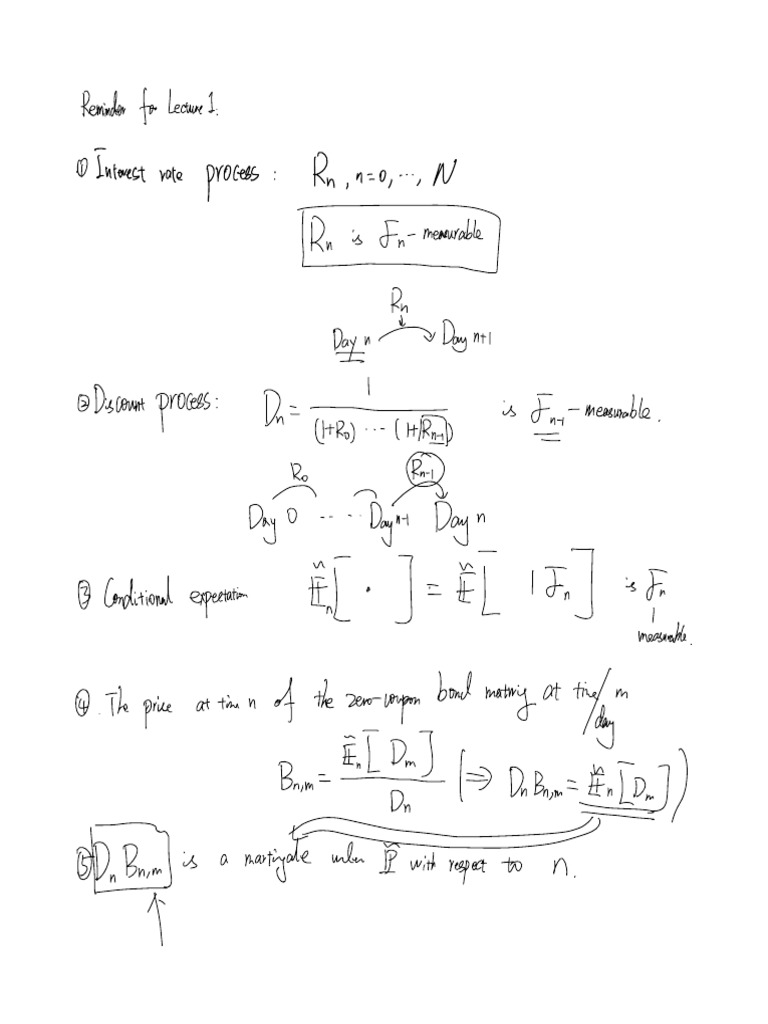 Reminder for Lecture 1.
① Interest rate process : Rₙ, n=0, ..., N
Rₙ is ℱₙ-measurable
Rₙ
Day n Day n+1
② Discount process : Dₙ = 1 / ((1+R₀) ... (1+Rₙ₋₁)) is ℱₙ₋₁-measurable.
R₀ Rₙ₋₁
Day 0 ... Day n-1 Day n
③ Conditional expectation Ẽₙ[ · ] = Ẽ[ | ℱₙ ] is ℱₙ
measurable.
④. The price at time n of the zero-coupon bond maturing at time/day m
Bₙ,ₘ = Ẽₙ[Dₘ] / Dₙ (⇒ DₙBₙ,ₘ = Ẽₙ[Dₘ])
⑤ DₙBₙ,ₘ is a martingale under P̃ with respect to n.